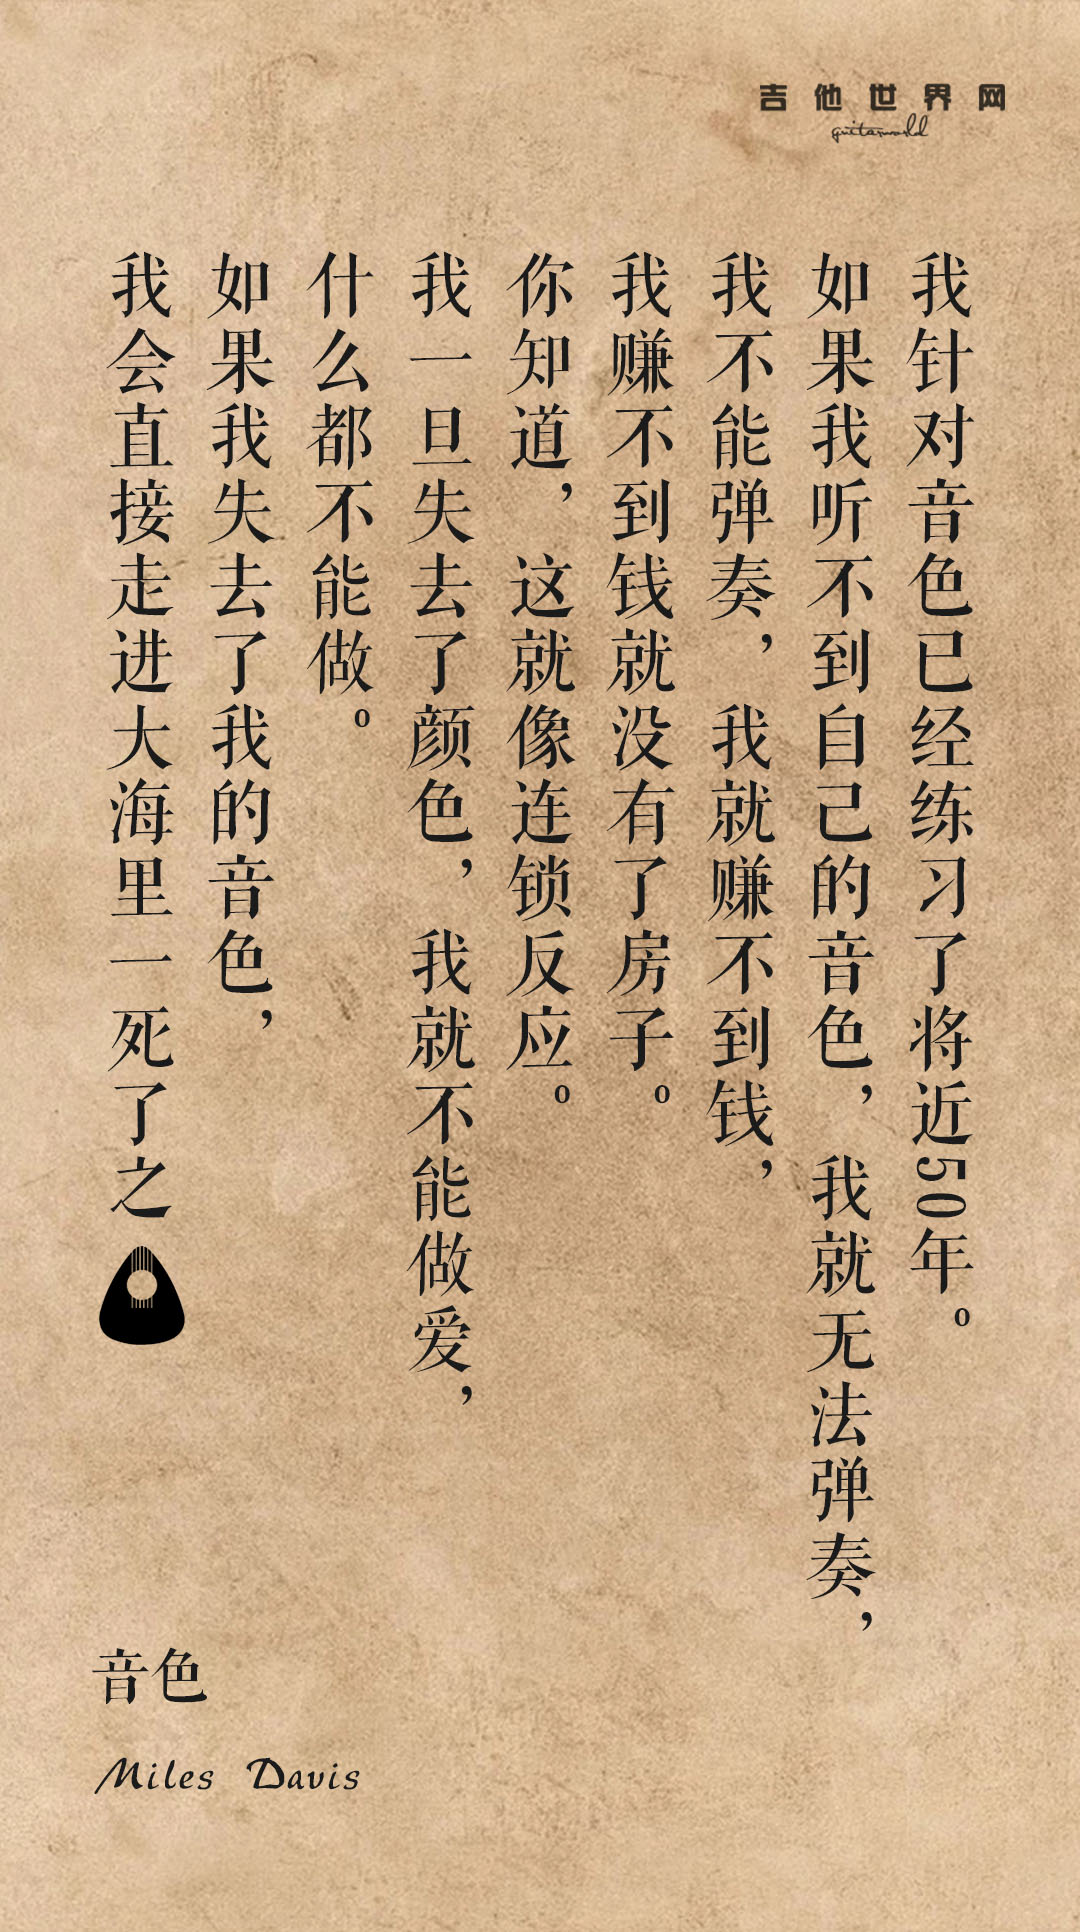 吉他世界网
guitarworld
我针对音色已经练习了将近50年。
如果我听不到自己的音色，我就无法弹奏，
我不能弹奏，我就赚不到钱，
我赚不到钱就没有了房子。
你知道，这就像连锁反应。
我一旦失去了颜色，我就不能做爱，
什么都不能做。
如果我失去了我的音色，
我会直接走进大海里一死了之
音色
Miles Davis